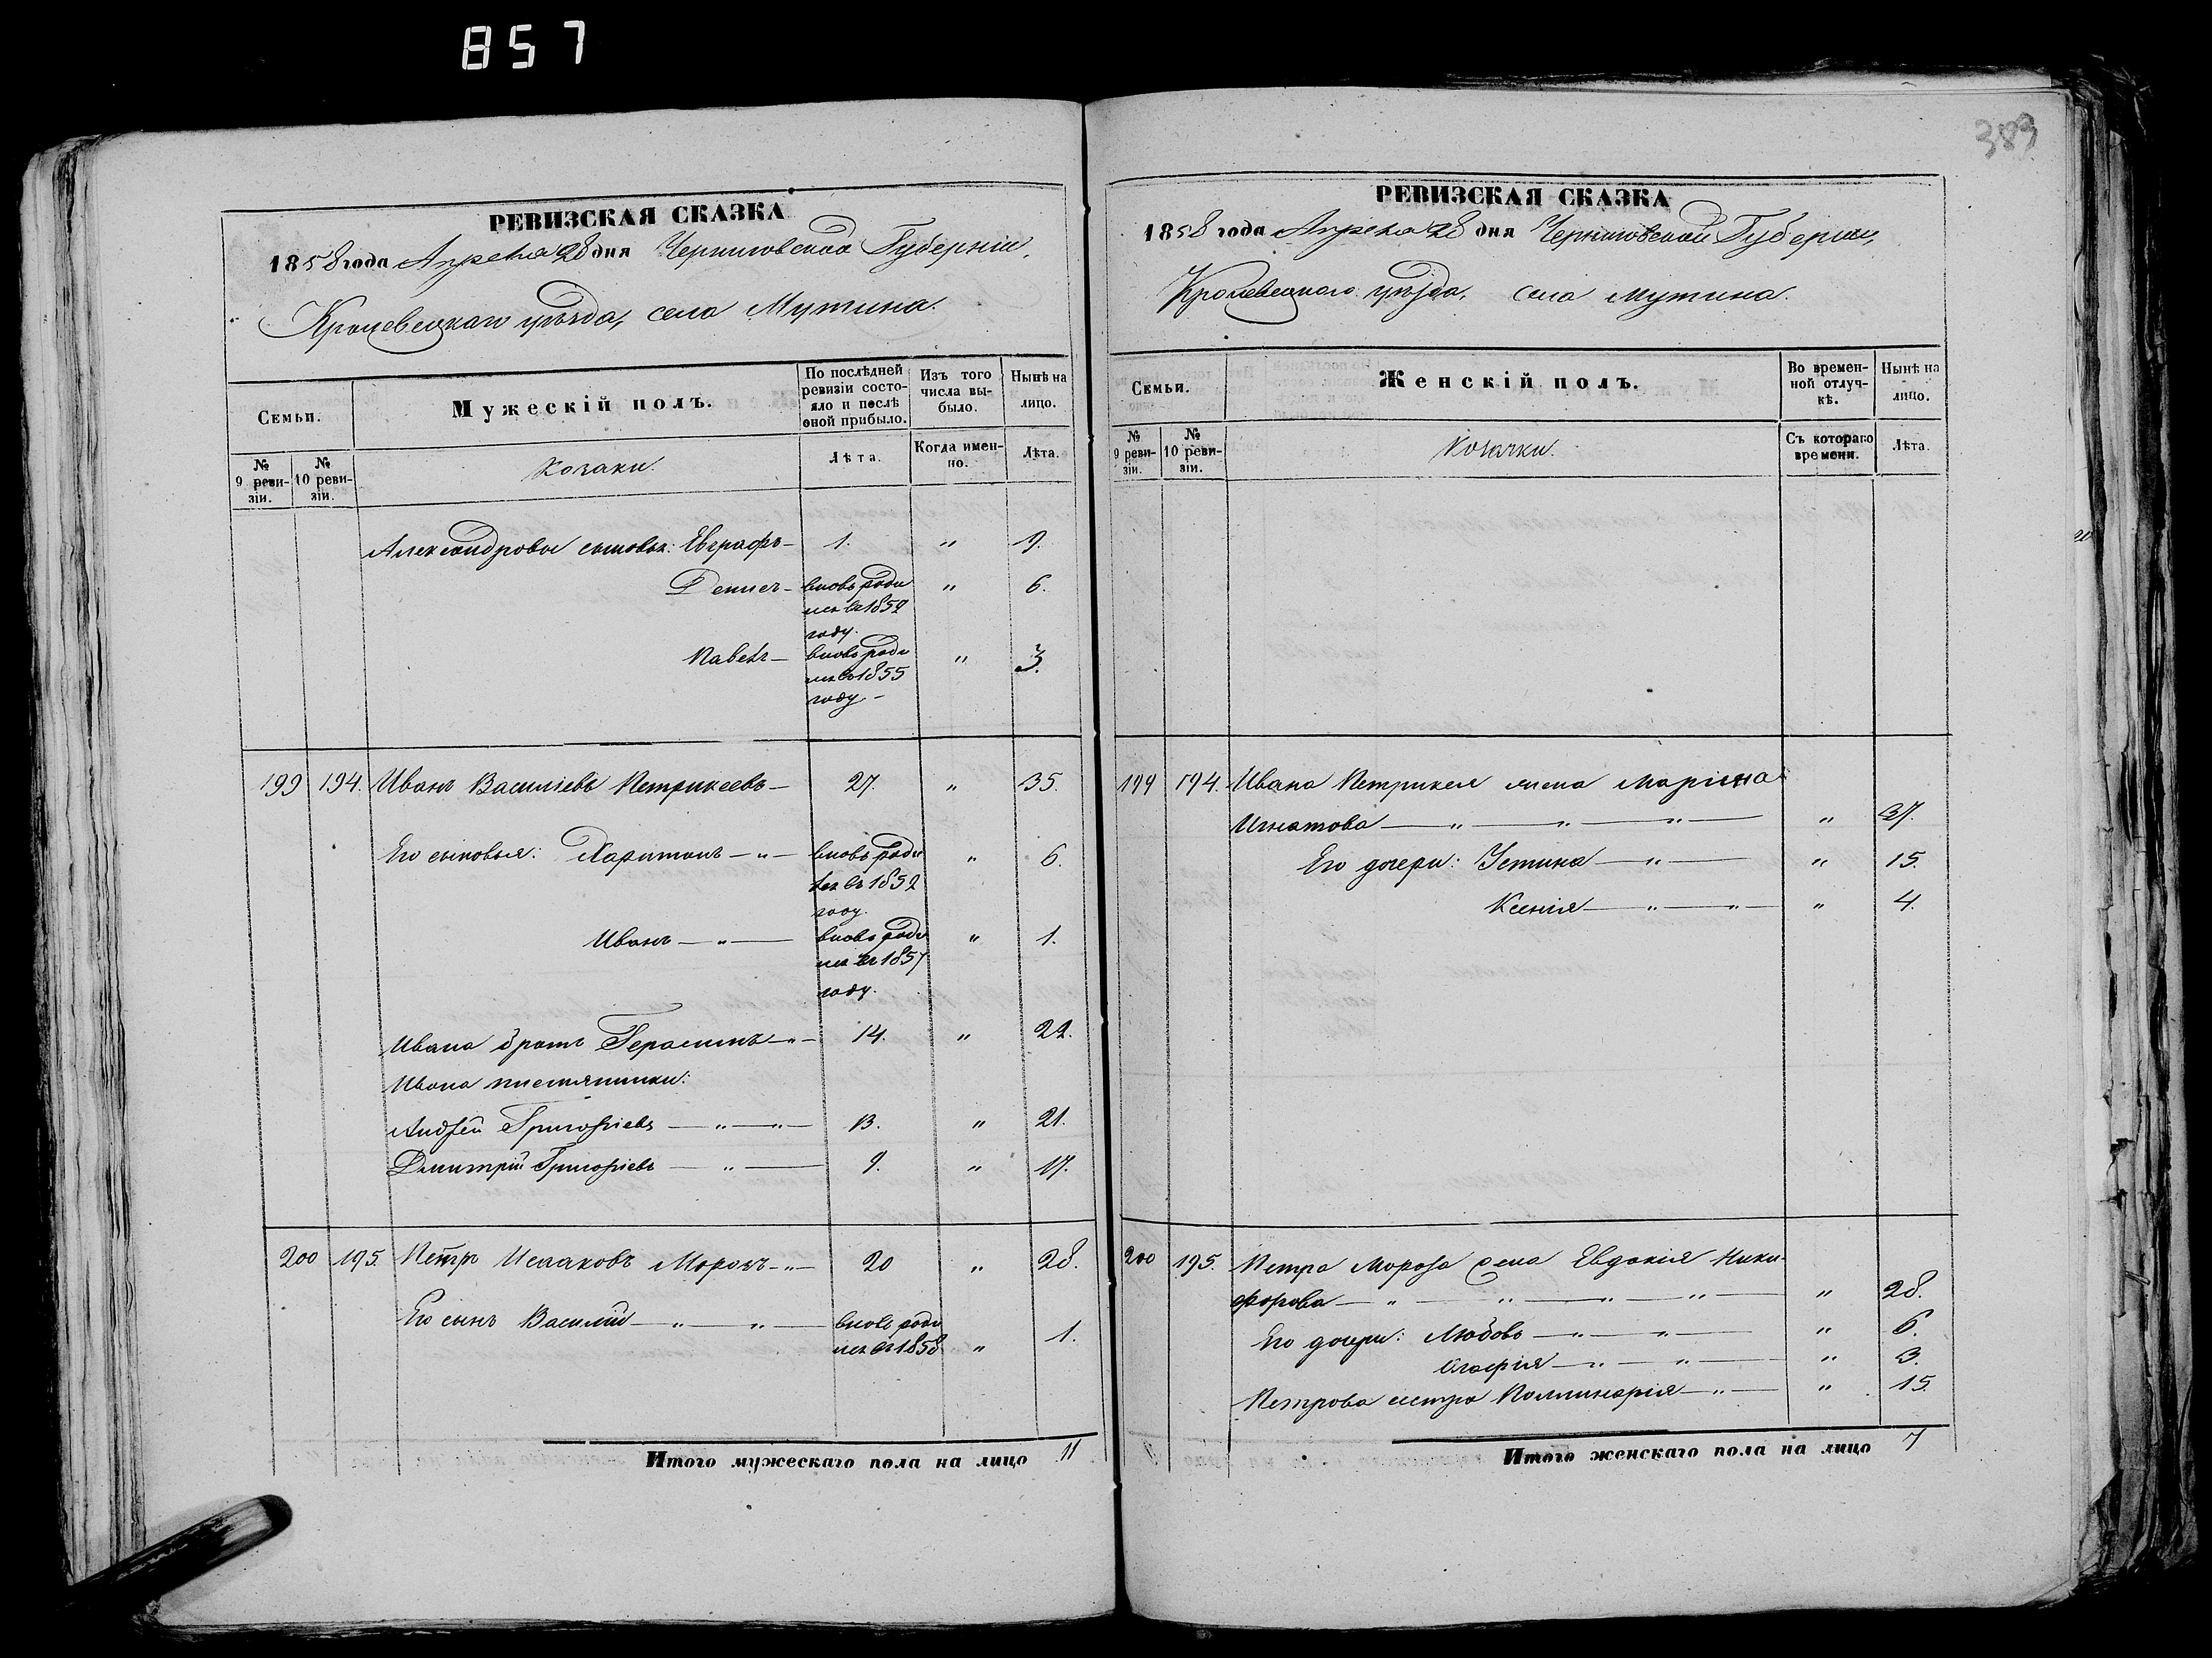 857
383
РЕВИЗСКАЯ СКАЗКА
1858 года Апреля 28 дня Черниговской Губерніи,
Кролевецкаго уѣзда, села Мутина.
Семьи.
Мужескій полъ.
По послѣдней ревизіи состояло и послѣ оной прибыло.
Изъ того числа выбыло.
Нынѣ на лицо.
№ 9 ревизіи.
№ 10 ревизіи.
Козаки.
Лѣта.
Когда именно.
Лѣта.
Александровы сыновья: Евграфъ — 1. " 9.
Денисъ — вновь роди " 6.
лся въ 1852
году.
Павелъ — вновь роди " 3.
лся въ 1855
году —
199 194. Иванъ Василіевъ Петрикеевъ — 27. " 35.
Его сыновья: Харитонъ — " — вновь роди " 6.
лся въ 1852
году.
Иванъ — " — вновь роди " 1.
лся въ 1857
году.
Ивана братъ Герасимъ — " — 14. " 22.
Ивана племянники:
Андрей Григоріевъ — " — " — 13. " 21.
Дмитрій Григоріевъ — " — 9. " 17.
200 195. Петръ Исааковъ Морозъ — " — 20 " 28.
Его сынъ Василій — " — " — вновь роди
лся въ 1858 " 1.
Итого мужескаго пола на лицо 11
РЕВИЗСКАЯ СКАЗКА
1858 года Апреля 28 дня Черниговской Губерніи,
Кролевецкаго уѣзда, села Мутина.
Семьи.
Женскій полъ.
Во временной отлучкѣ.
Нынѣ на лицо.
№ 9 ревизіи.
№ 10 ревизіи.
Козачки.
Съ котораго времени.
Лѣта.
199 194. Ивана Петрикея жена Марина
Игнатова — " — " — " — " 37.
Его дочери: Устина — " — " 15.
Ксенія — " — " — " 4.
200 195. Петра Мороза жена Евдокія Ники-
форова — " — " — " — " — " 28.
Его дочери: Любовь — " — " — " 6.
Агафія — " — " — " 3.
Петрова сестра — " — " 15.
Итого женскаго пола на лицо 7